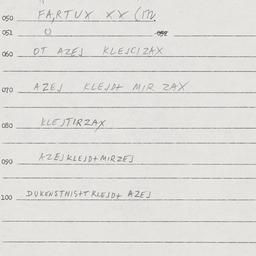 050 FA,RTUX XX (ITU,
051 U
060 OT AZEJ KLEJCIZAX
070 AZEJ KLEJD+ MIR ZAX
080 KLEJTIRZAX
090 AZEJKLEJD+MIRZEJ
100 DUKENSTNIS+T KLEJD+ AZEJ